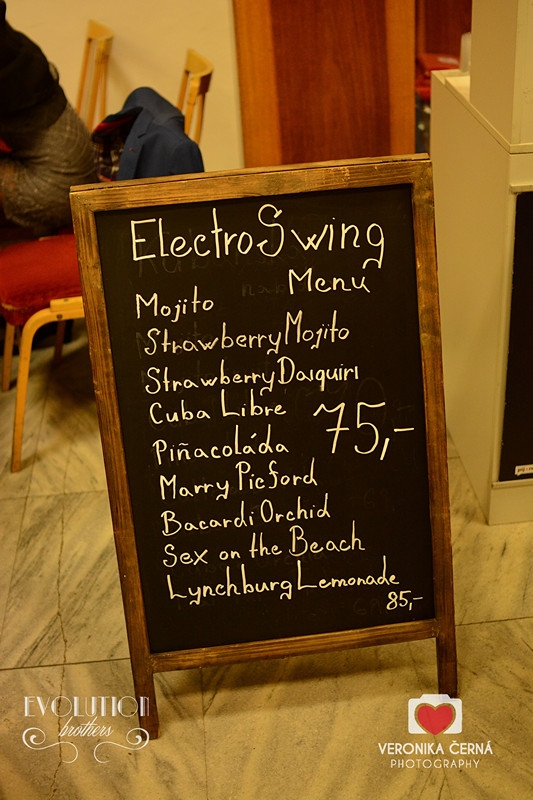 ElectroSwing
Menu
Mojito
Strawberry Mojito
Strawberry Daiquiri
Cuba Libre
75,-
Piñacoláda
Marry Picford
Bacardi Orchid
Sex on the Beach
Lynchburg Lemonade
85,-
EVOLUTION
brothers
VERONIKA ČERNÁ
PHOTOGRAPHY